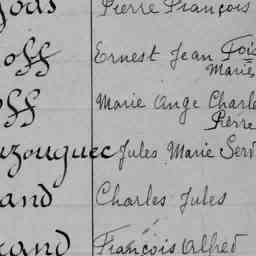 Pierre François
off Ernest Jean Fois
Marie
off Marie Ange Charle
Pierre
uzouguec Jules Marie Serv
and Charles Jules
rand François Alfred